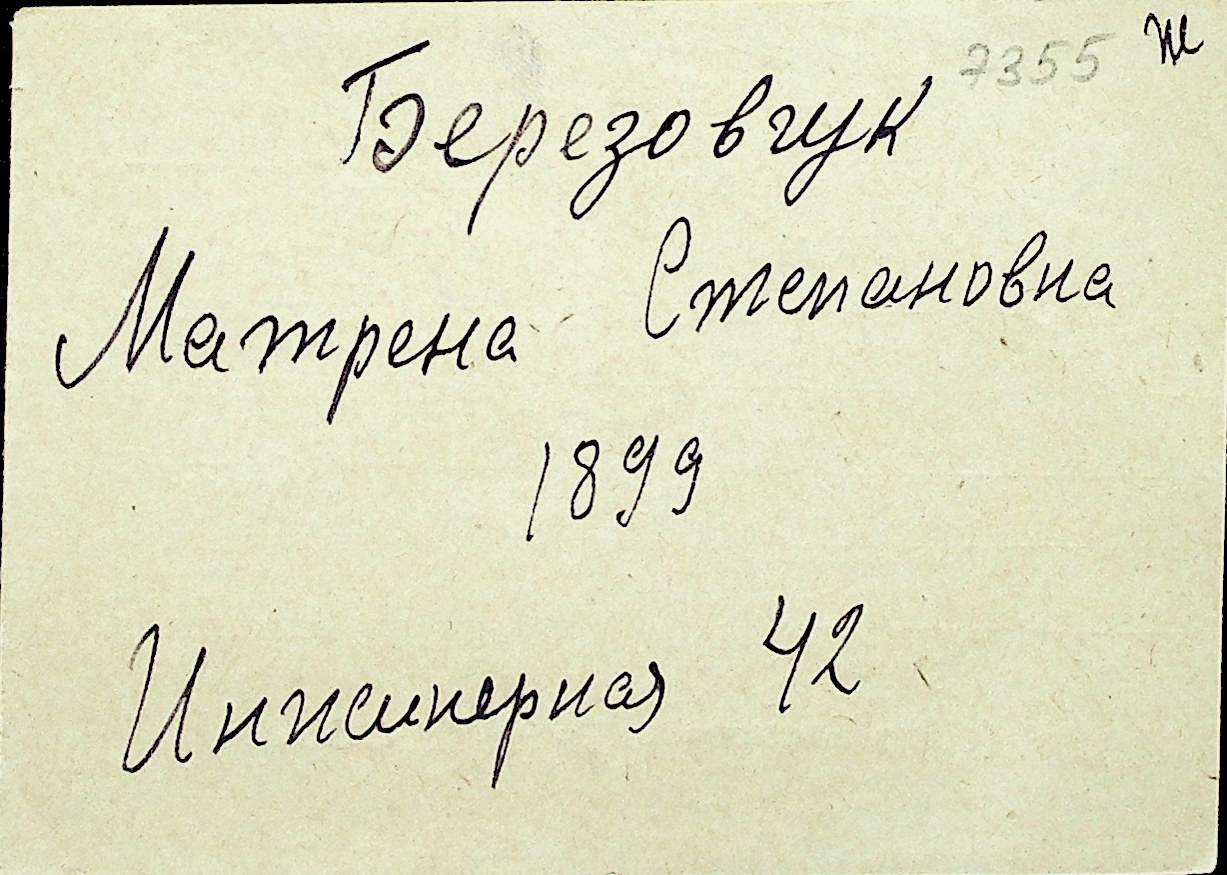 7355 ж
Березовчук
Матрена Степановна
1899
Инжинерная 42